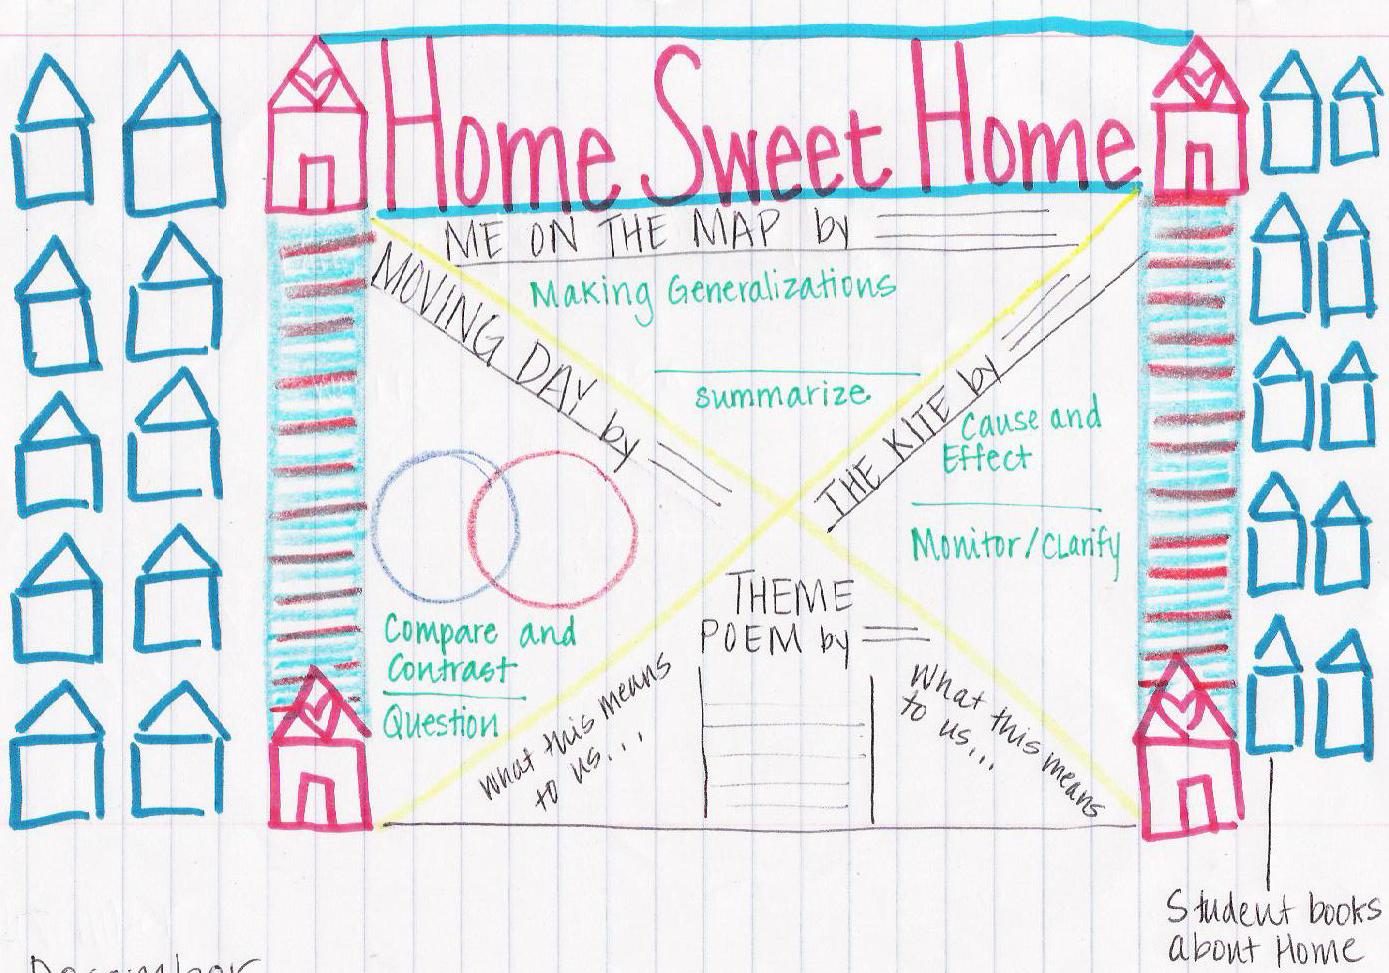 Home Sweet Home
ME ON THE MAP by
Making Generalizations
summarize
MOVING DAY by
Compare and
Contrast
Question
THE KITE by
Cause and
Effect
Monitor/Clarify
THEME
POEM by
What this means
to us...
What this means
to us...
Student books
about Home